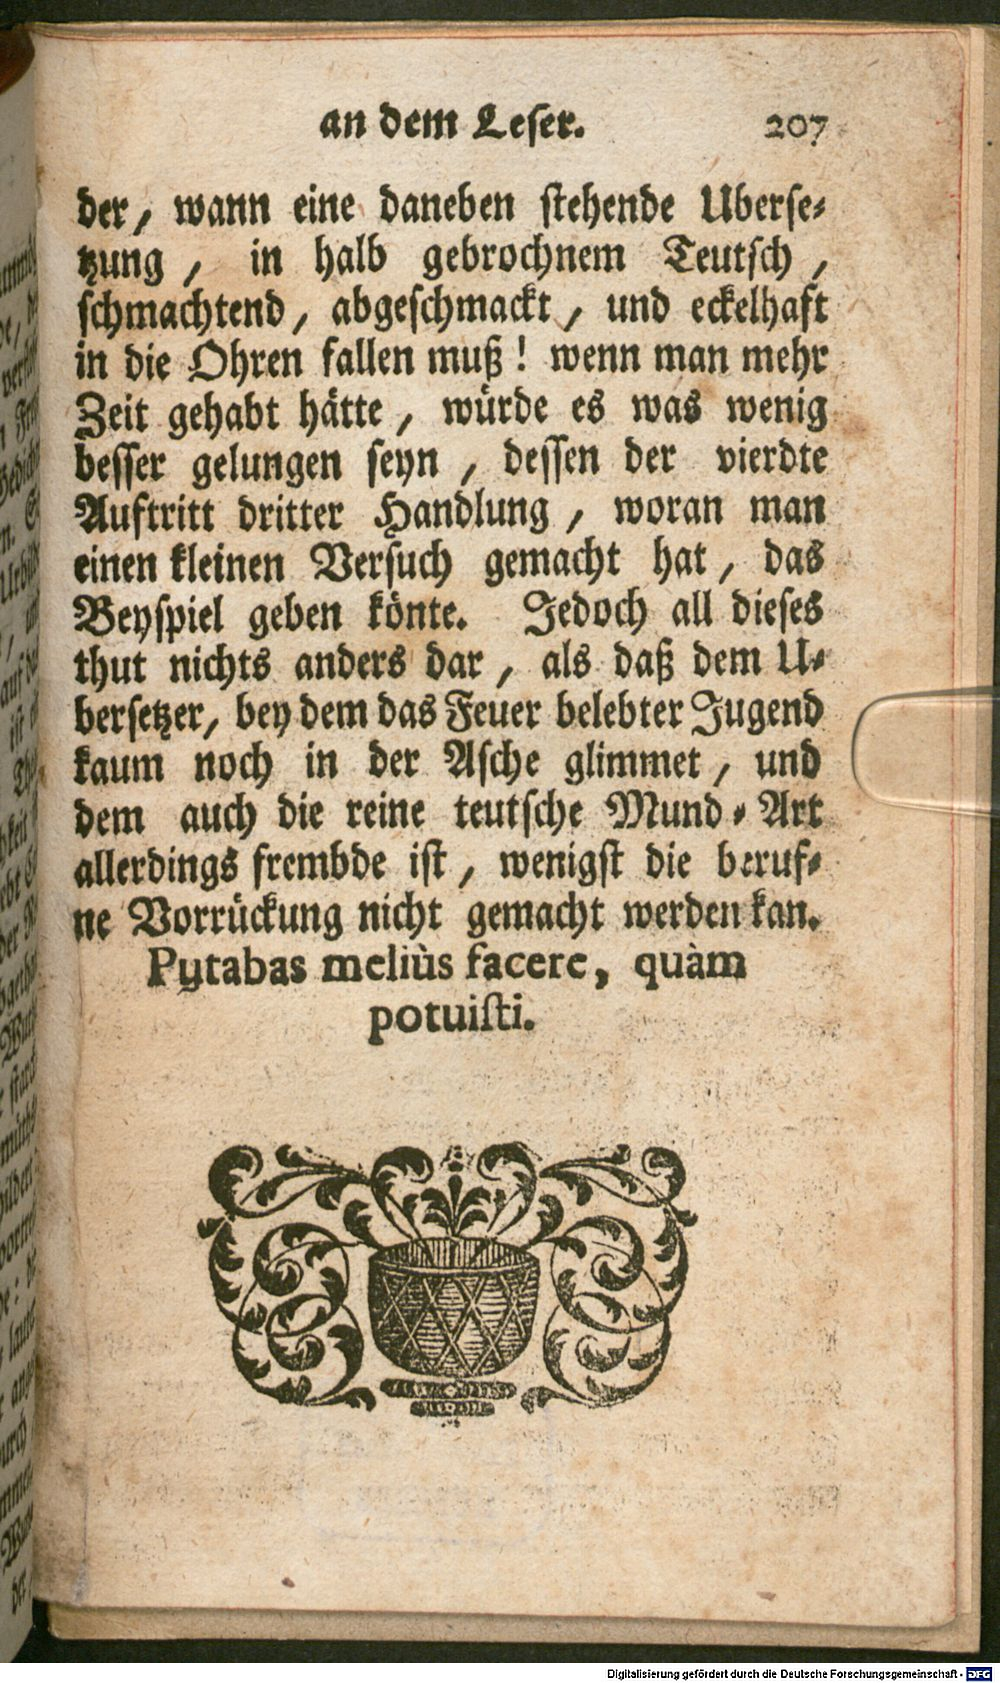 an dem Leser. 207
der, wann eine daneben stehende Uberse-
tzung, in halb gebrochnem Teutsch,
schmachtend, abgeschmackt, und eckelhaft
in die Ohren fallen muß! wenn man mehr
Zeit gehabt hätte, würde es was wenig
besser gelungen seyn, dessen der vierdte
Auftritt dritter Handlung, woran man
einen kleinen Versuch gemacht hat, das
Beyspiel geben könte. Jedoch all dieses
thut nichts anders dar, als daß dem U-
bersetzer, bey dem das Feuer belebter Jugend
kaum noch in der Asche glimmet, und
dem auch die reine teutsche Mund-Art
allerdings frembde ist, wenigst die beruf-
ne Vorrückung nicht gemacht werden kan.
Pytabas meliùs facere, quàm
potuisti.
Digitalisierung gefördert durch die Deutsche Forschungsgemeinschaft - DFG